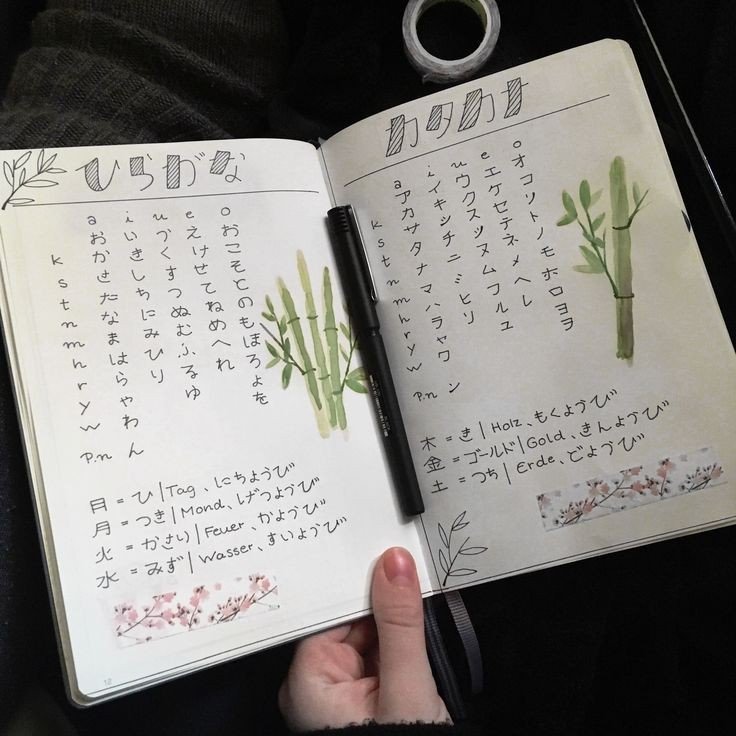 ひらがな
a i u e o
あ い う え お
k か き く け こ
s さ し す せ そ
t た ち つ て と
n な に ぬ ね の
m ま み む め も
h は ひ ふ へ ほ
r ら り る れ ろ
y や ゆ よ
w わ を
P.n ん
日 = ひ | Tag、にちようび
月 = つき | Mond、げつようび
火 = かさり | Feuer、かようび
水 = みず | Wasser、すいようび
12
カタカナ
a i u e o
ア イ ウ エ オ
k カ キ ク ケ コ
s サ シ ス セ ソ
t タ チ ツ テ ト
n ナ ニ ヌ ネ ノ
m マ ミ ム メ モ
h ハ ヒ フ ヘ ホ
r ラ リ ル レ ロ
y ヤ ユ ヨ
w ワ ヲ
P.n ン
木 = き | Holz、もくようび
金 = ゴールド | Gold、きんようび
土 = つち | Erde、どようび